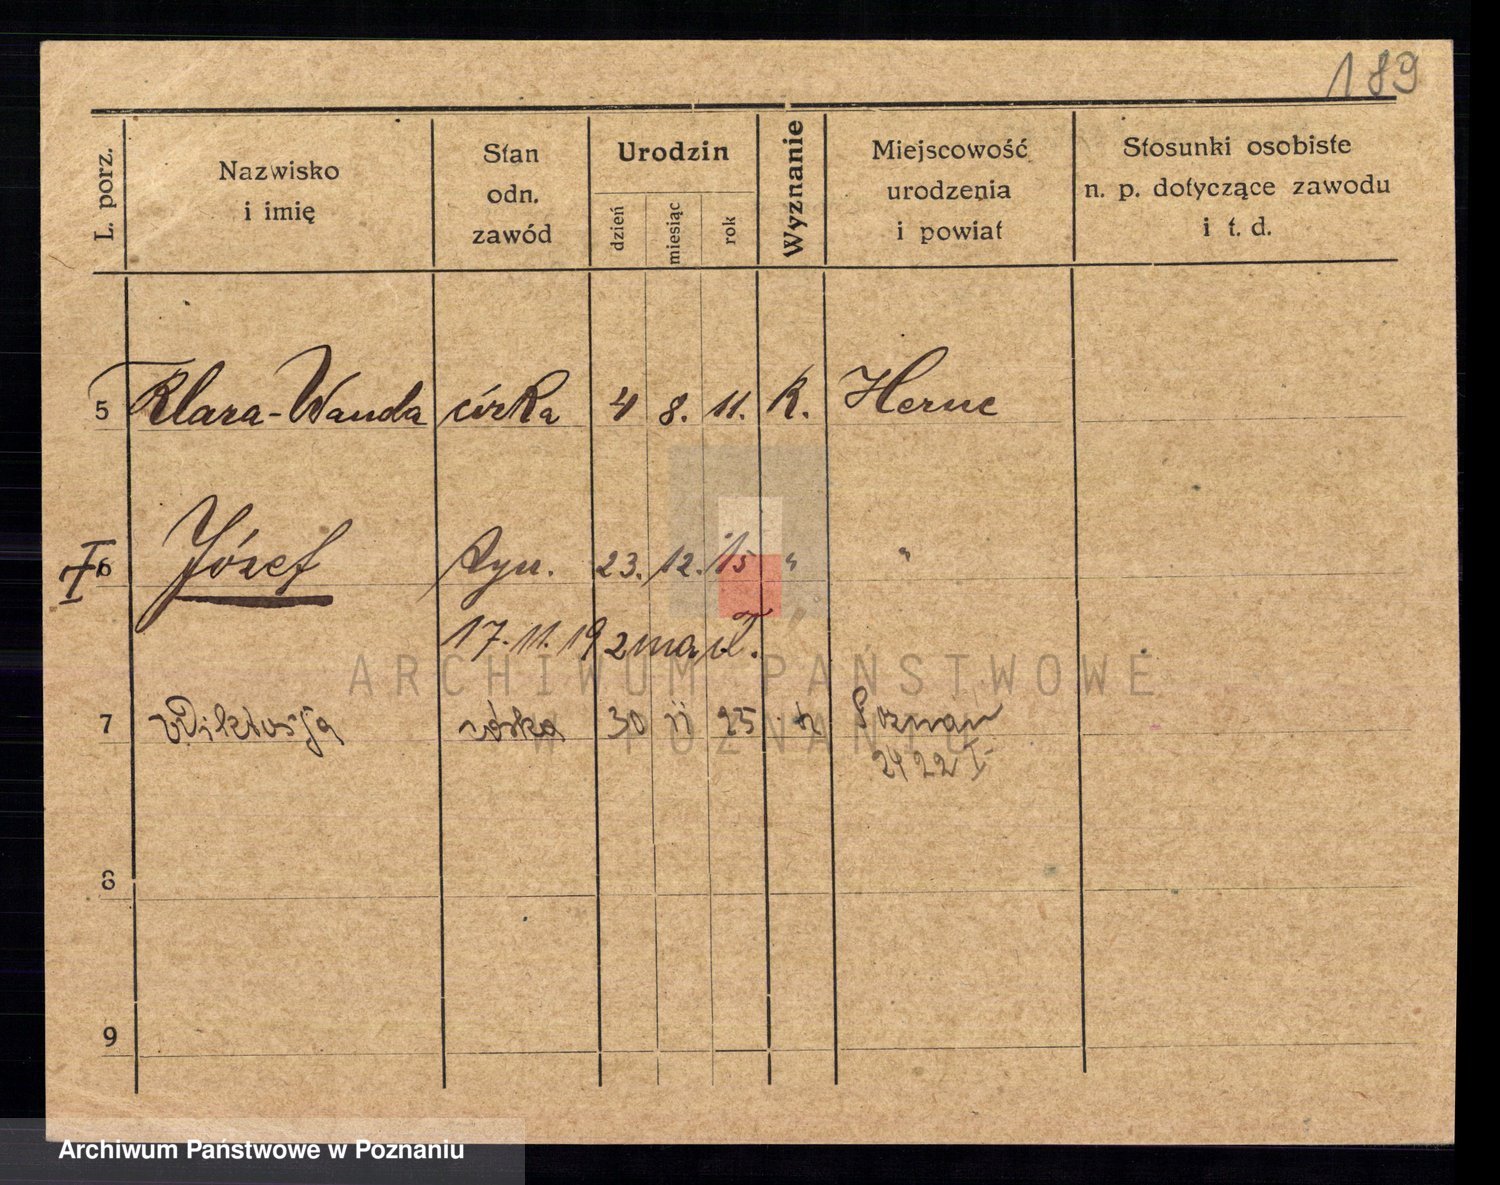 189
L. porz.
Nazwisko
i imię
Stan
odn.
zawód
Urodzin
dzień
miesiąc
rok
Wyznanie
Miejscowość
urodzenia
i powiat
Stosunki osobiste
n. p. dotyczące zawodu
i t. d.
5 Klara-Wanda córka 4 8. 11. K. Herne
6 Józef syn. 23. 12. 15 " "
17. 11. 192
ARCHIWUM PAŃSTWOWE
7 Wiktorja córka 30 11 25 k Poznań
W POZNANIU
2422 I
8
9
Archiwum Państwowe w Poznaniu